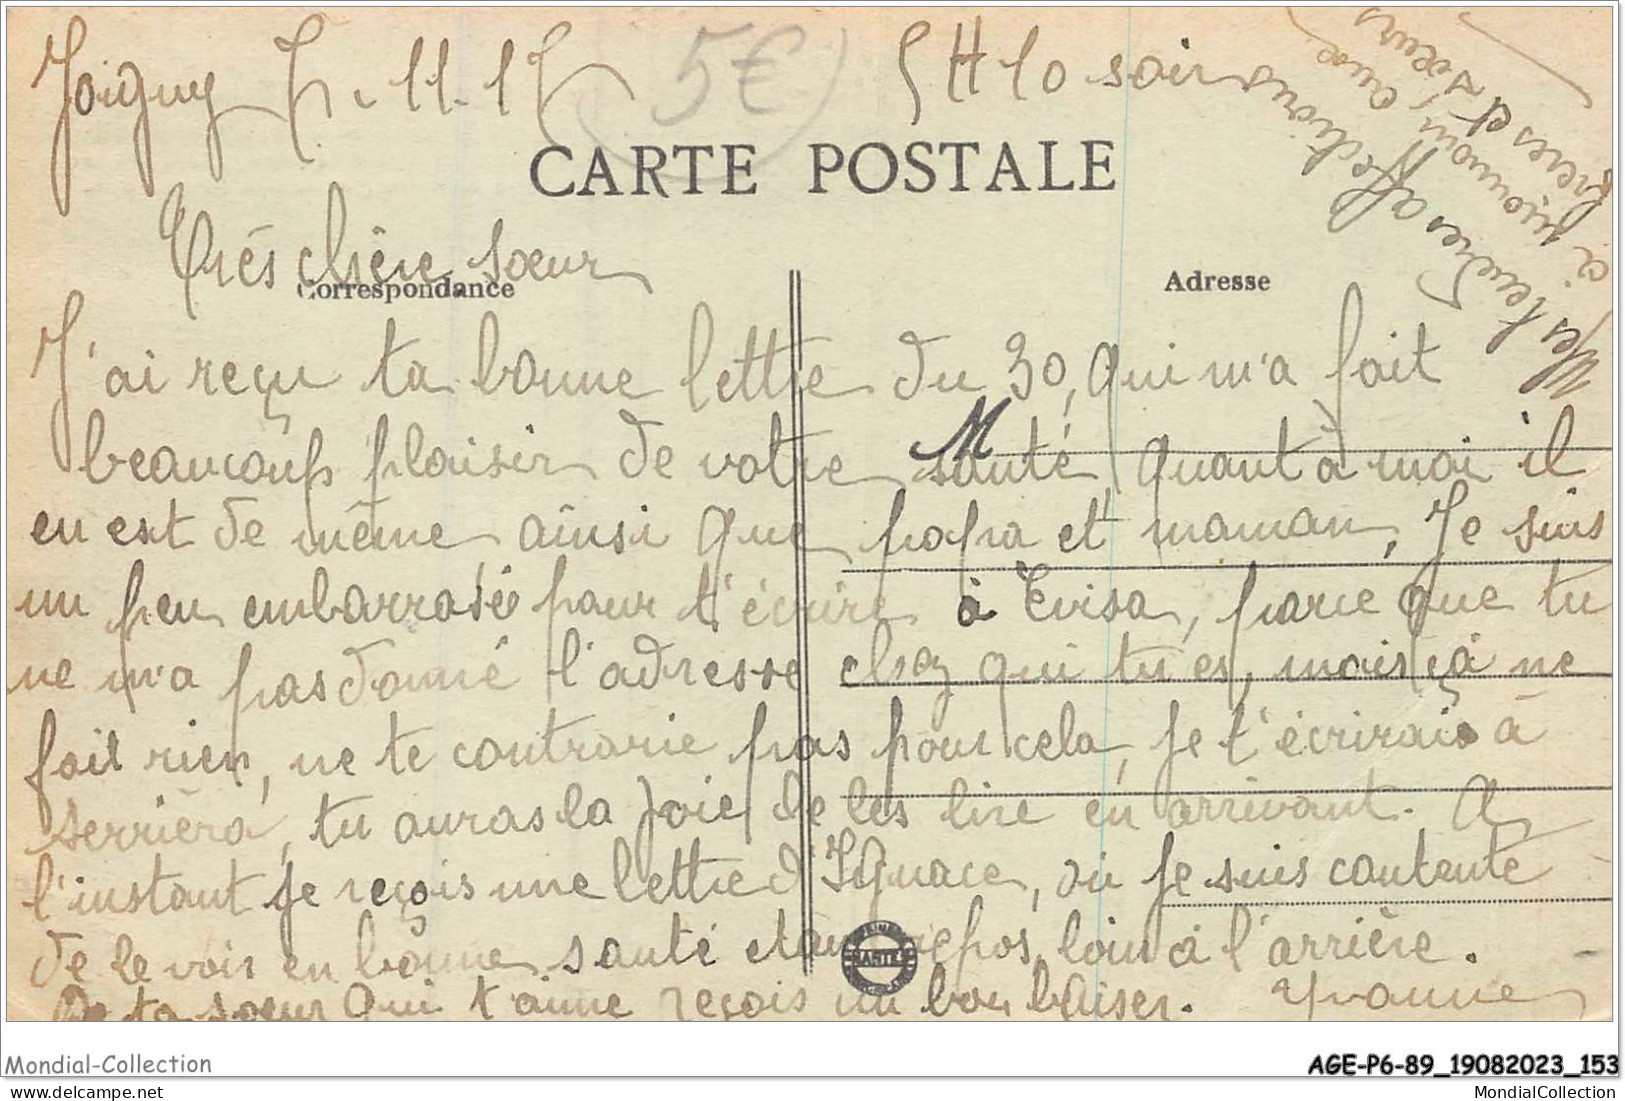 Joigny 7-11-17
5€
5H10 soir
CARTE POSTALE
Très chère sœur
Correspondance
Adresse
J'ai reçu ta bonne lettre du 30, qui m'a fait
beaucoup plaisir de votre santé, quant à moi il
en est de même, ainsi que papa et maman, Je suis
un peu embarrasée pour t'écrire à Evisa, parce que tu
ne m'a pas donné l'adresse chez qui tu es, mais çà ne
fait rien, ne te contrarie pas pour cela, je t'écrirais à
Serriera, tu auras la joie de les lire en arrivant. A
l'instant je reçois une lettre d'Ignace, où je suis contente
de le voir en bonne santé et au repos, loin à l'arrière.
De ta sœur qui t'aime reçois un bon baiser. Yvonne
Mes tendres affections
ci mon oncle
frères et sœurs
NANTES
Mondial-Collection
AGE-P6-89_19082023_153
MondialCollection